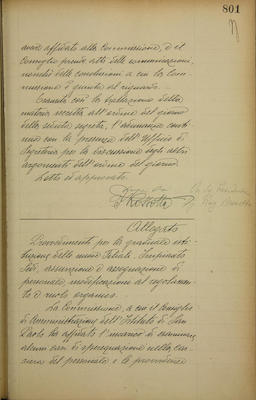 801
aveva affidato alla Commissione, e il
Consiglio prende atto delle comunicazioni,
nonchè delle conclusioni a cui la Com-
missione è giunta al riguardo.
Esaurita così la trattazione della
materia iscritta all'ordine del giorno
della seduta segreta, l'adunanza conti-
nua con la presenza dell'Ufficio di
Segreteria per la discussione degli altri
argomenti dell'ordine del giorno.
Letto ed approvato.
Allegato
Provvedimenti per la graduale costi-
tuzione delle nuove Filiali. Impianto
Sedi, assunzione e assegnazione di
personale, modificazioni al regolamento
e ruolo organico.
La Commissione, a cui il Consiglio
di Amministrazione dell'Istituto di San
Paolo ha affidato l'incarico di esaminare
alcuni casi di sperequazione nella car-
riera del personale e le provvidenze